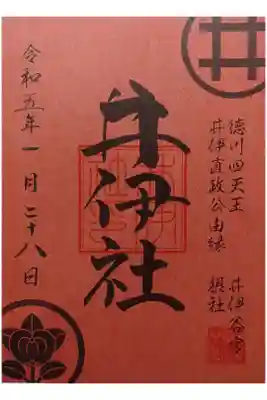 徳川四天王
井伊直政公由縁
井伊谷宮
摂社
井伊社
令和五年一月二十八日